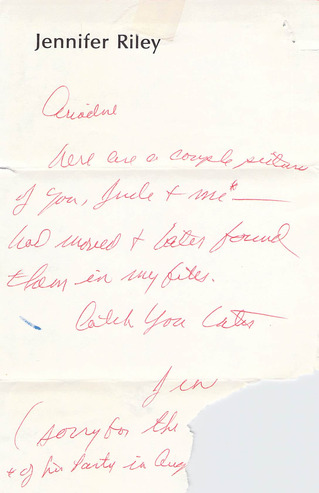 Jennifer Riley
Ariadne
here are a couple picture
of you, Jude + me*—
had moved + later found
them in my files.
Catch You Later
Jen
(sorry for the
+ of his Party in Aug